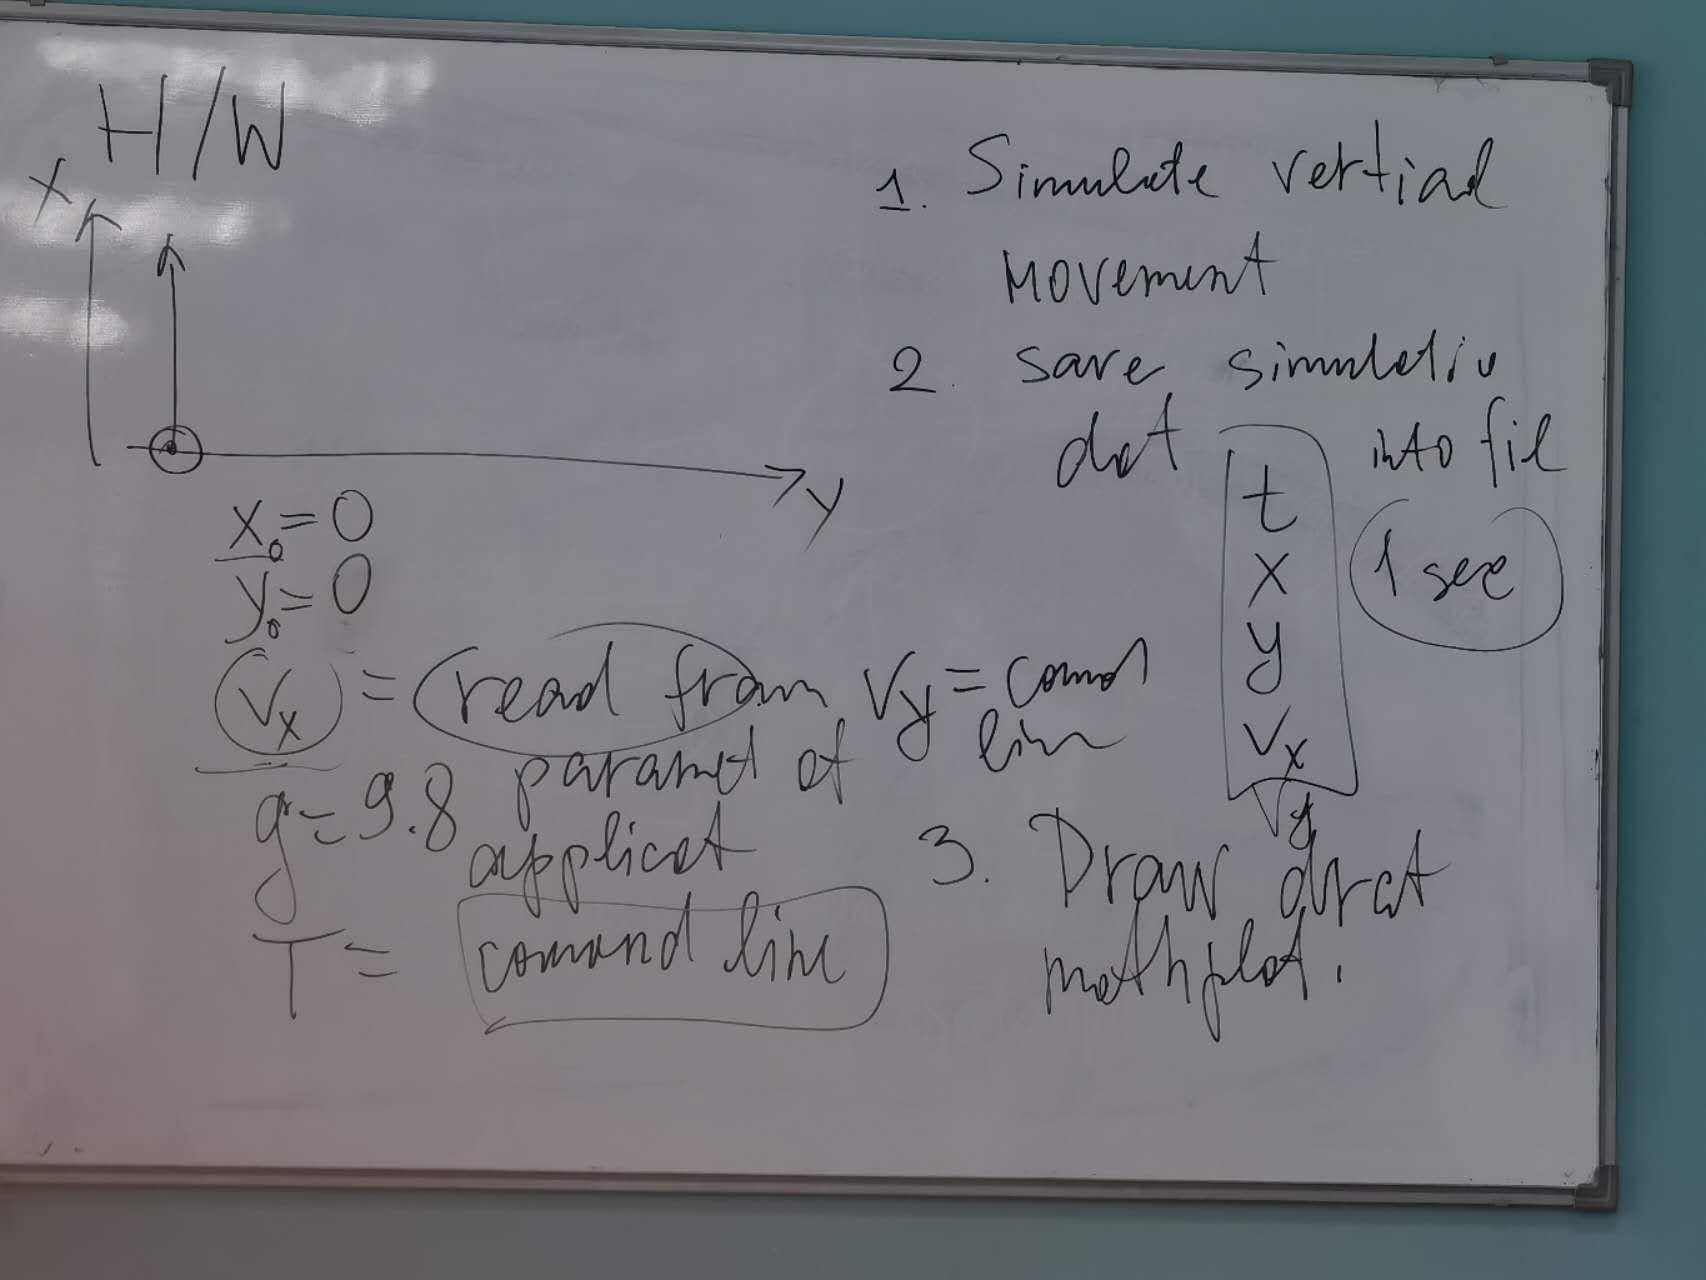 H/W
x
y
x₀=0
y₀=0
Vx = read from
paramet of
applicat
Vy = comnd
lin
g=9.8
T = comand line
1. Simulate vertical
movement
2. save simulatio
dat into fil
t
x
y
Vx
Vy
1 sec
3. Draw
mathplot.